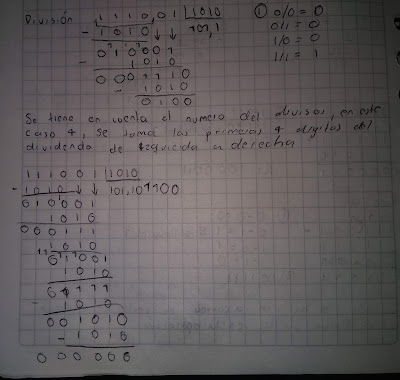 División
1 1 1 0,01 | 1010
- 1010 ↓ ↓ 101,1
010001
- 1010
0001110
- 1010
0100
① 0/0 = 0
0/1 = 0
1/0 = 0
1/1 = 1
Se tiene en cuenta el numero del divisor, en este
caso 4, se toma los primeros 4 digitos del
dividendo de izquierda a derecha
111001 | 1010
- 1010 ↓ ↓ 101,101100
010001
1010
000111
1010
- 1010
001010
- 1010
000000